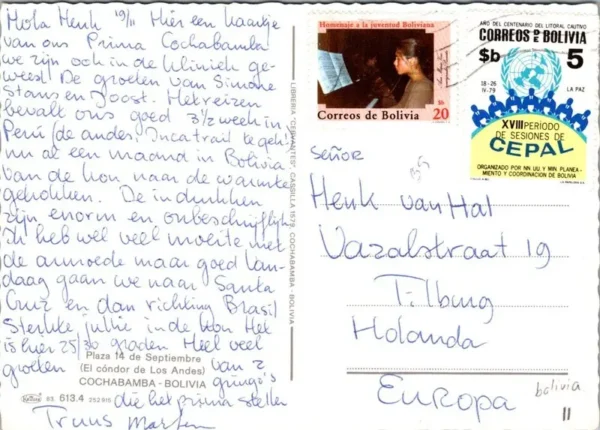 Hola Henk 19/11 Hier een kaartje
van ons Prima Cochabamba
we zijn ook in de kliniek ge-
weest De groeten van Simone
Stans en Joost Het reizen
bevalt ons goed 3½ week in
Perú (de andes, Incatrail) te geh
nu al een maand in Bolivia
van de kou naar de warmte
getrokken. De indrukken
zijn enorm en onbeschrijflijk
Ik heb wel veel moeite met
de armoede maar goed Van-
daag gaan we naar Santa
Cruz en dan richting Brasil
Sterkte jullie in de kou Het
is hier 25/30 graden Heel veel
groeten van 2
gringo's
die het prima stellen
Truus
Plaza 14 de Septiembre
(El cóndor de Los Andes)
COCHABAMBA - BOLIVIA
03 613.4 252915
LIBRERIA "CERVANTES" CASILLA 1579 COCHABAMBA - BOLIVIA
Homenaje a la juventud Boliviana
$b
20
Correos de Bolivia
AÑO DEL CENTENARIO DEL LITORAL CAUTIVO
CORREOS DE BOLIVIA
$b 5
18-26
IV-79
LA PAZ
XVIII PERIODO
DE SESIONES DE
CEPAL
ORGANIZADO POR NN UU Y MIN. PLANEA-
MIENTO Y COORDINACION DE BOLIVIA
SEÑOR
Henk van Hal
Vazalstraat 19
Tilburg
Holanda
Europa
bolivia
11